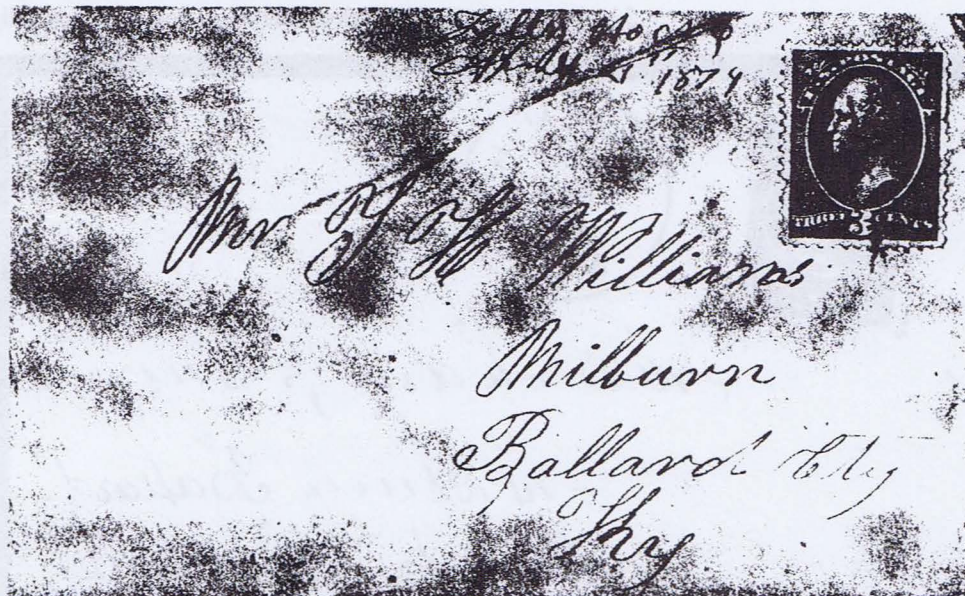 1874
U.S. POSTAGE
THREE 3 CENTS
Mr T H Williams
Milburn
Ballard Cty
Ky